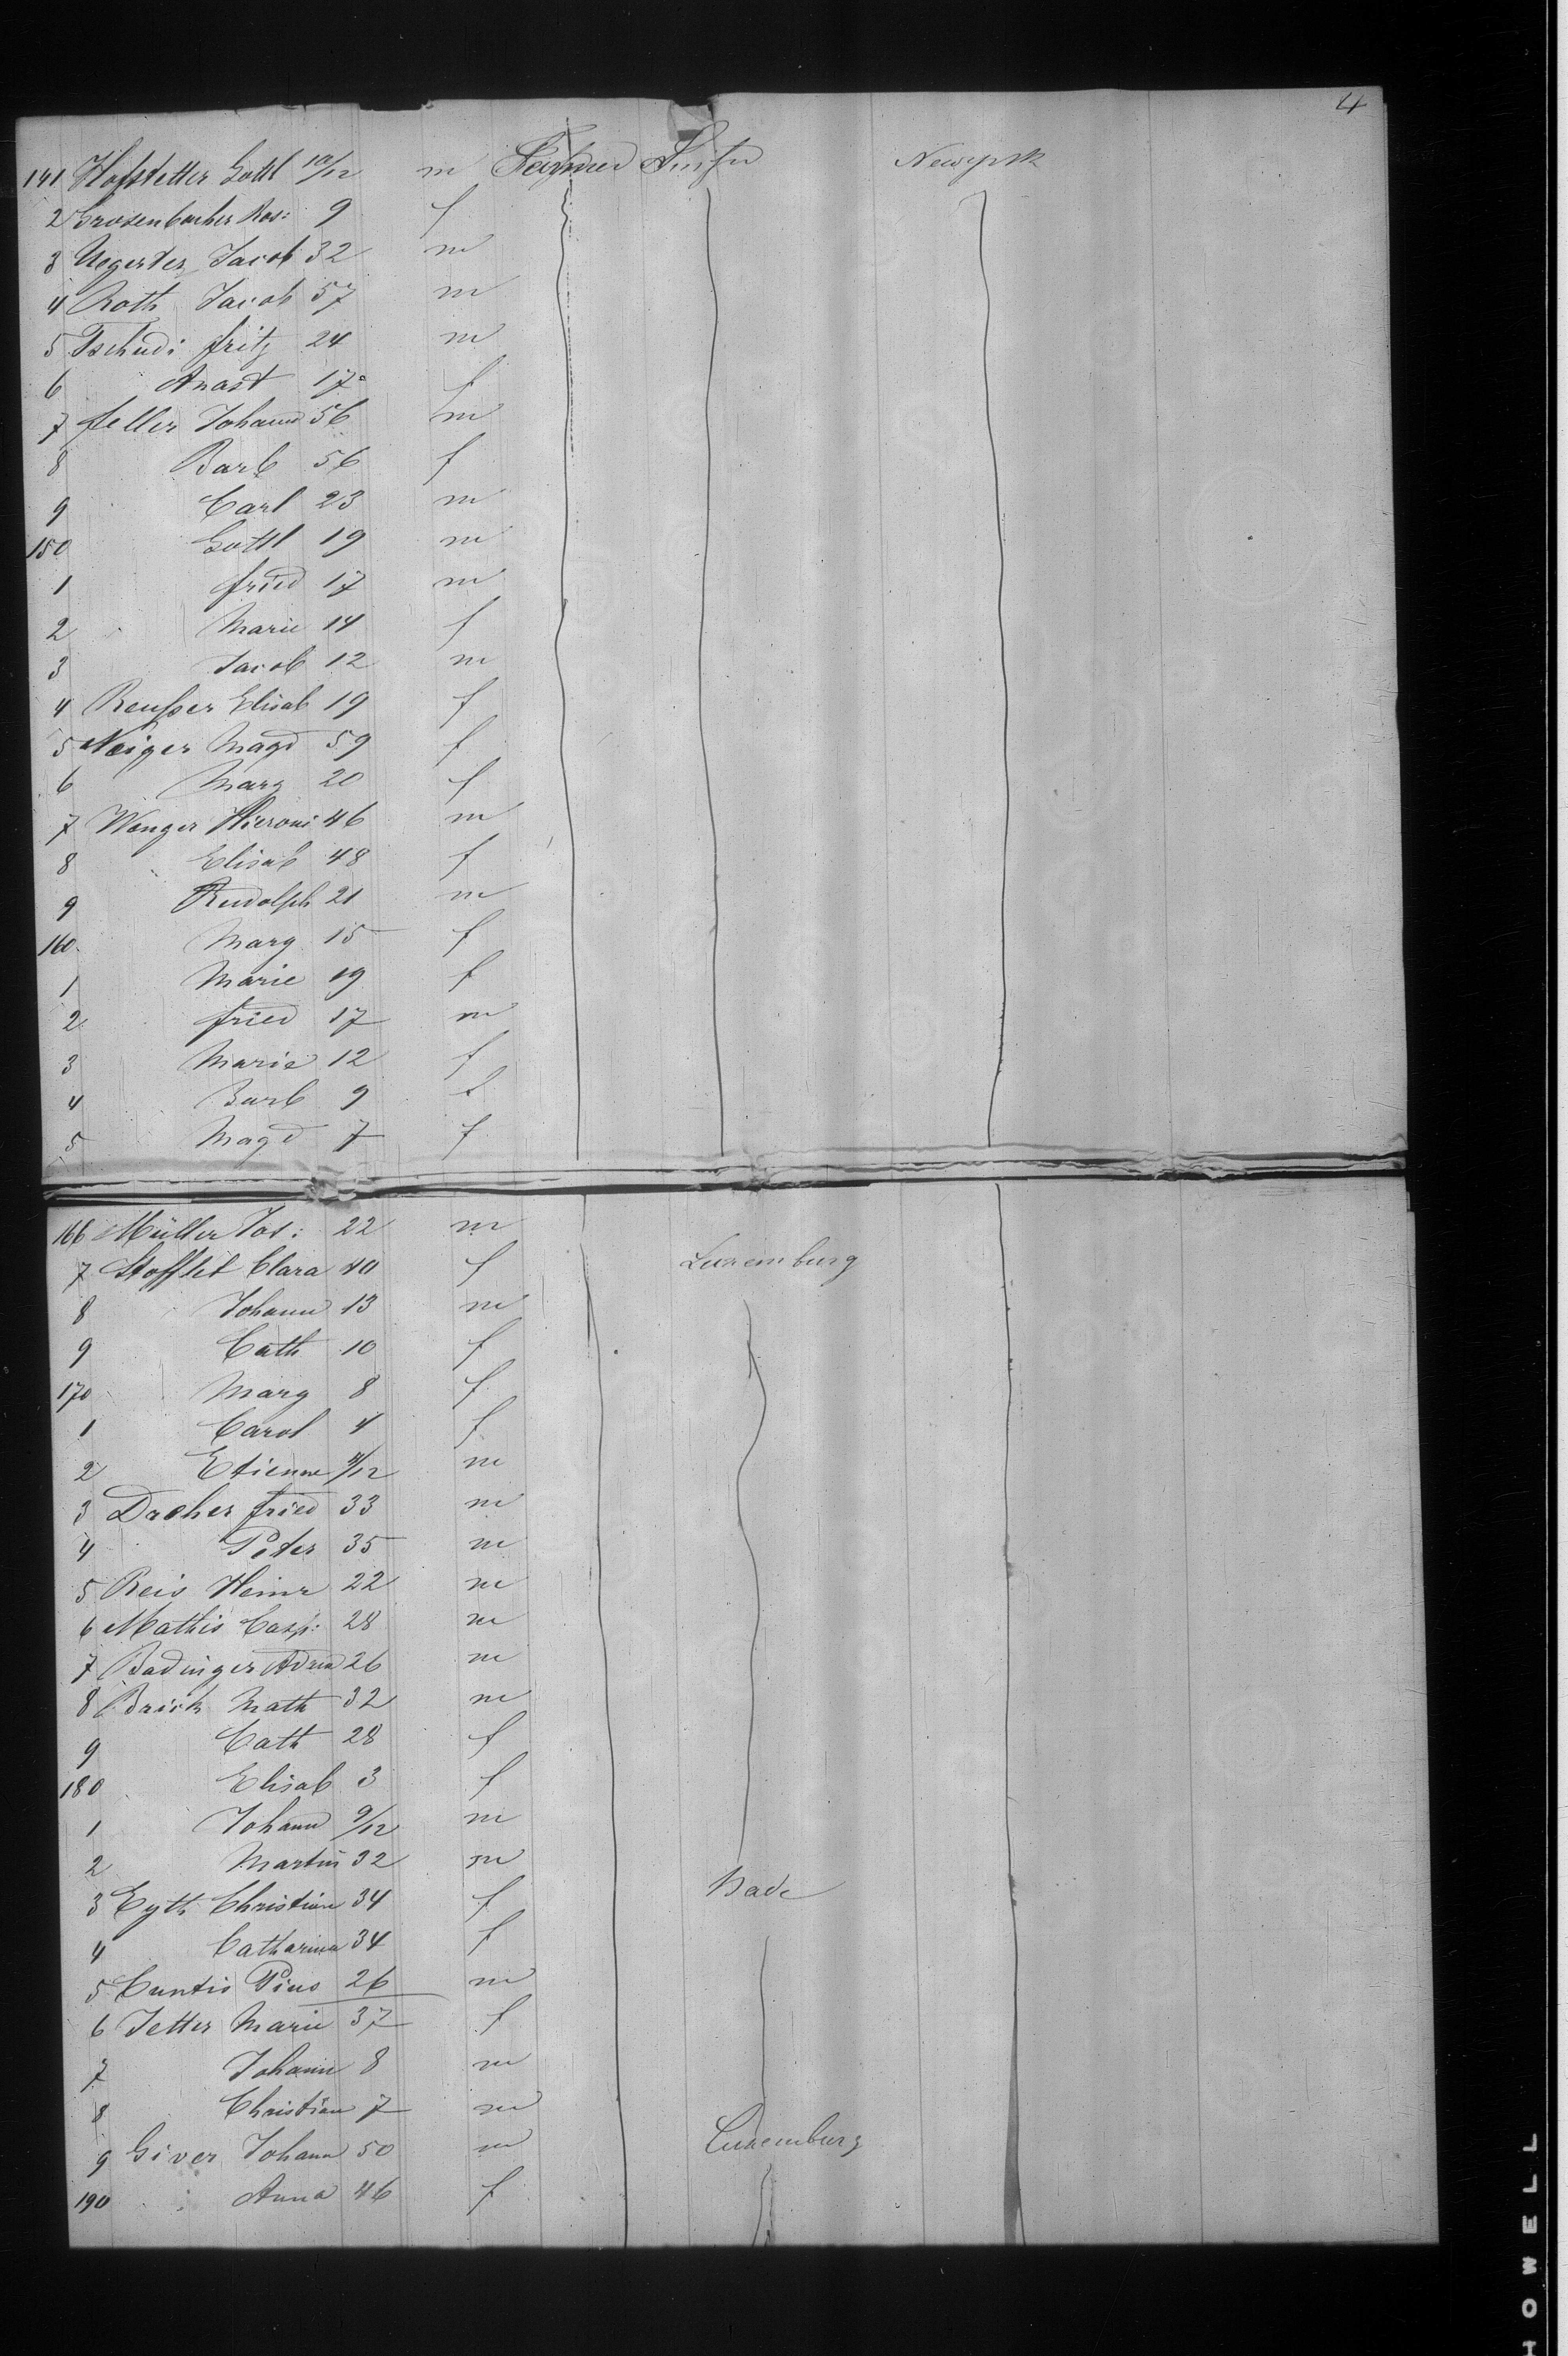 4
141 Hofstetter Gottl 10/12 m Farmer Suisse Newyork
2 Grosenbacher Ros: 9 f
3 Uegerter Jacob 32 m
4 Roth Jacob 57 m
5 Tschudi Fritz 24 m
6 Anast 17 f
7 Feller Johann 56 m
8 Barb 56 f
9 Carl 23 m
150 Gottl 19 m
1 Fried 17 m
2 Marie 14 f
3 Jacob 12 m
4 Reusser Elisab 19 f
5 Neiger Magd 59 f
6 Marg 20 f
7 Wenger Hieroni 46 m
8 Elisab 48 f
9 Rudolph 21 m
160 Marg 15 f
1 Marie 19 f
2 Fried 17 m
3 Marie 12 f
4 Barb 9 f
5 Magd 7 f
166 Müller Jos: 22 m
7 Stofflet Clara 40 f Luxemburg
8 Johann 13 m
9 Cath 10 f
170 Marg 8 f
1 Carol 4 f
2 Etienne /12 m
3 Dacher Fried 33 m
4 Peter 35 m
5 Reis Heinr 22 m
6 Mathis Casp: 28 m
7 Badinger 26 m
8 Brick Math 32 m
9 Cath 28 f
180 Elisab 3 f
1 Johann 9/12 m
2 Martin 32 m
3 Eyth Christine 34 f Bade
4 Catharina 34 f
5 Cuntis Pius 26 m
6 Jetter Marie 37 f
7 Johann 8 m
8 Christian 7 m
9 Giver Johann 50 m Luxemburg
190 Anna 46 f
HOWELL